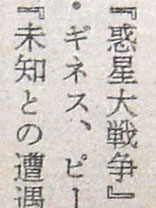 『惑星大戦争』
・ギネス、ピー
『未知との遭遇